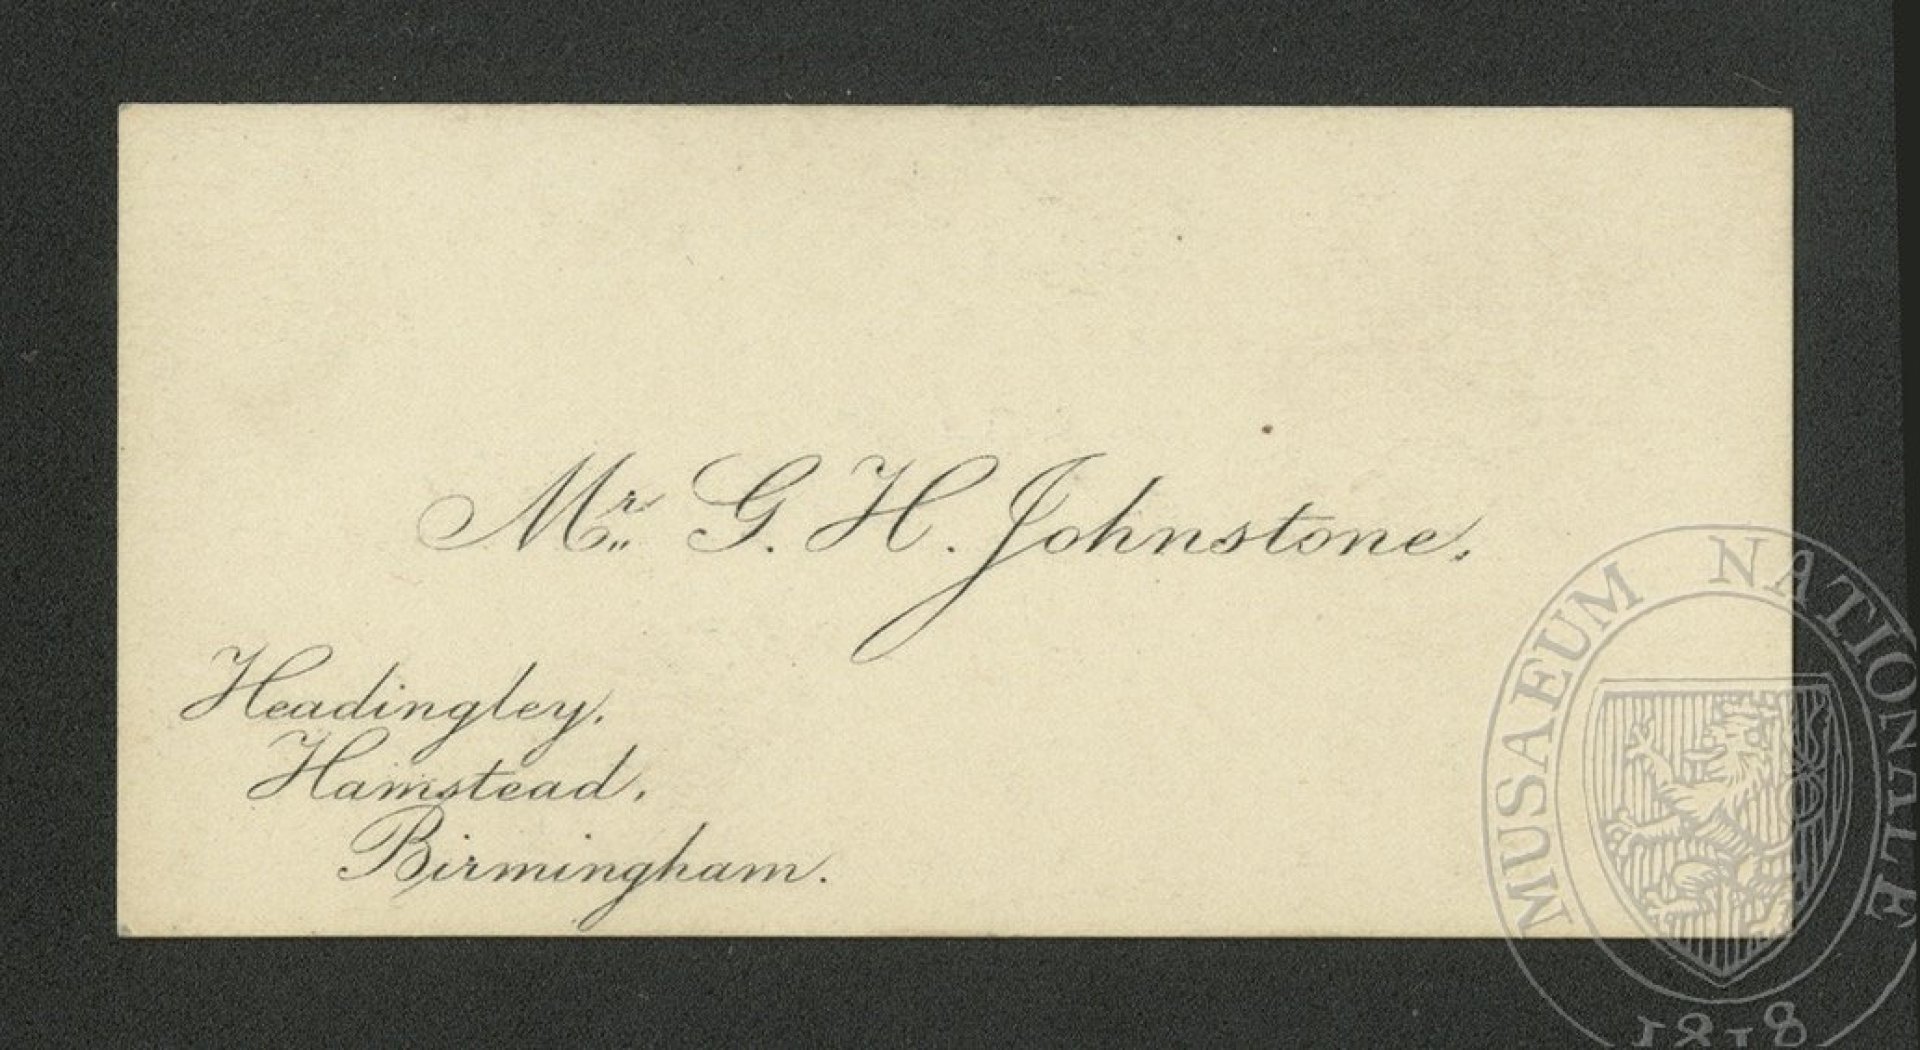 Mr. G. H. Johnstone.
Headingley,
Hamstead,
Birmingham.
MUSAEUM NATIONALE
1818